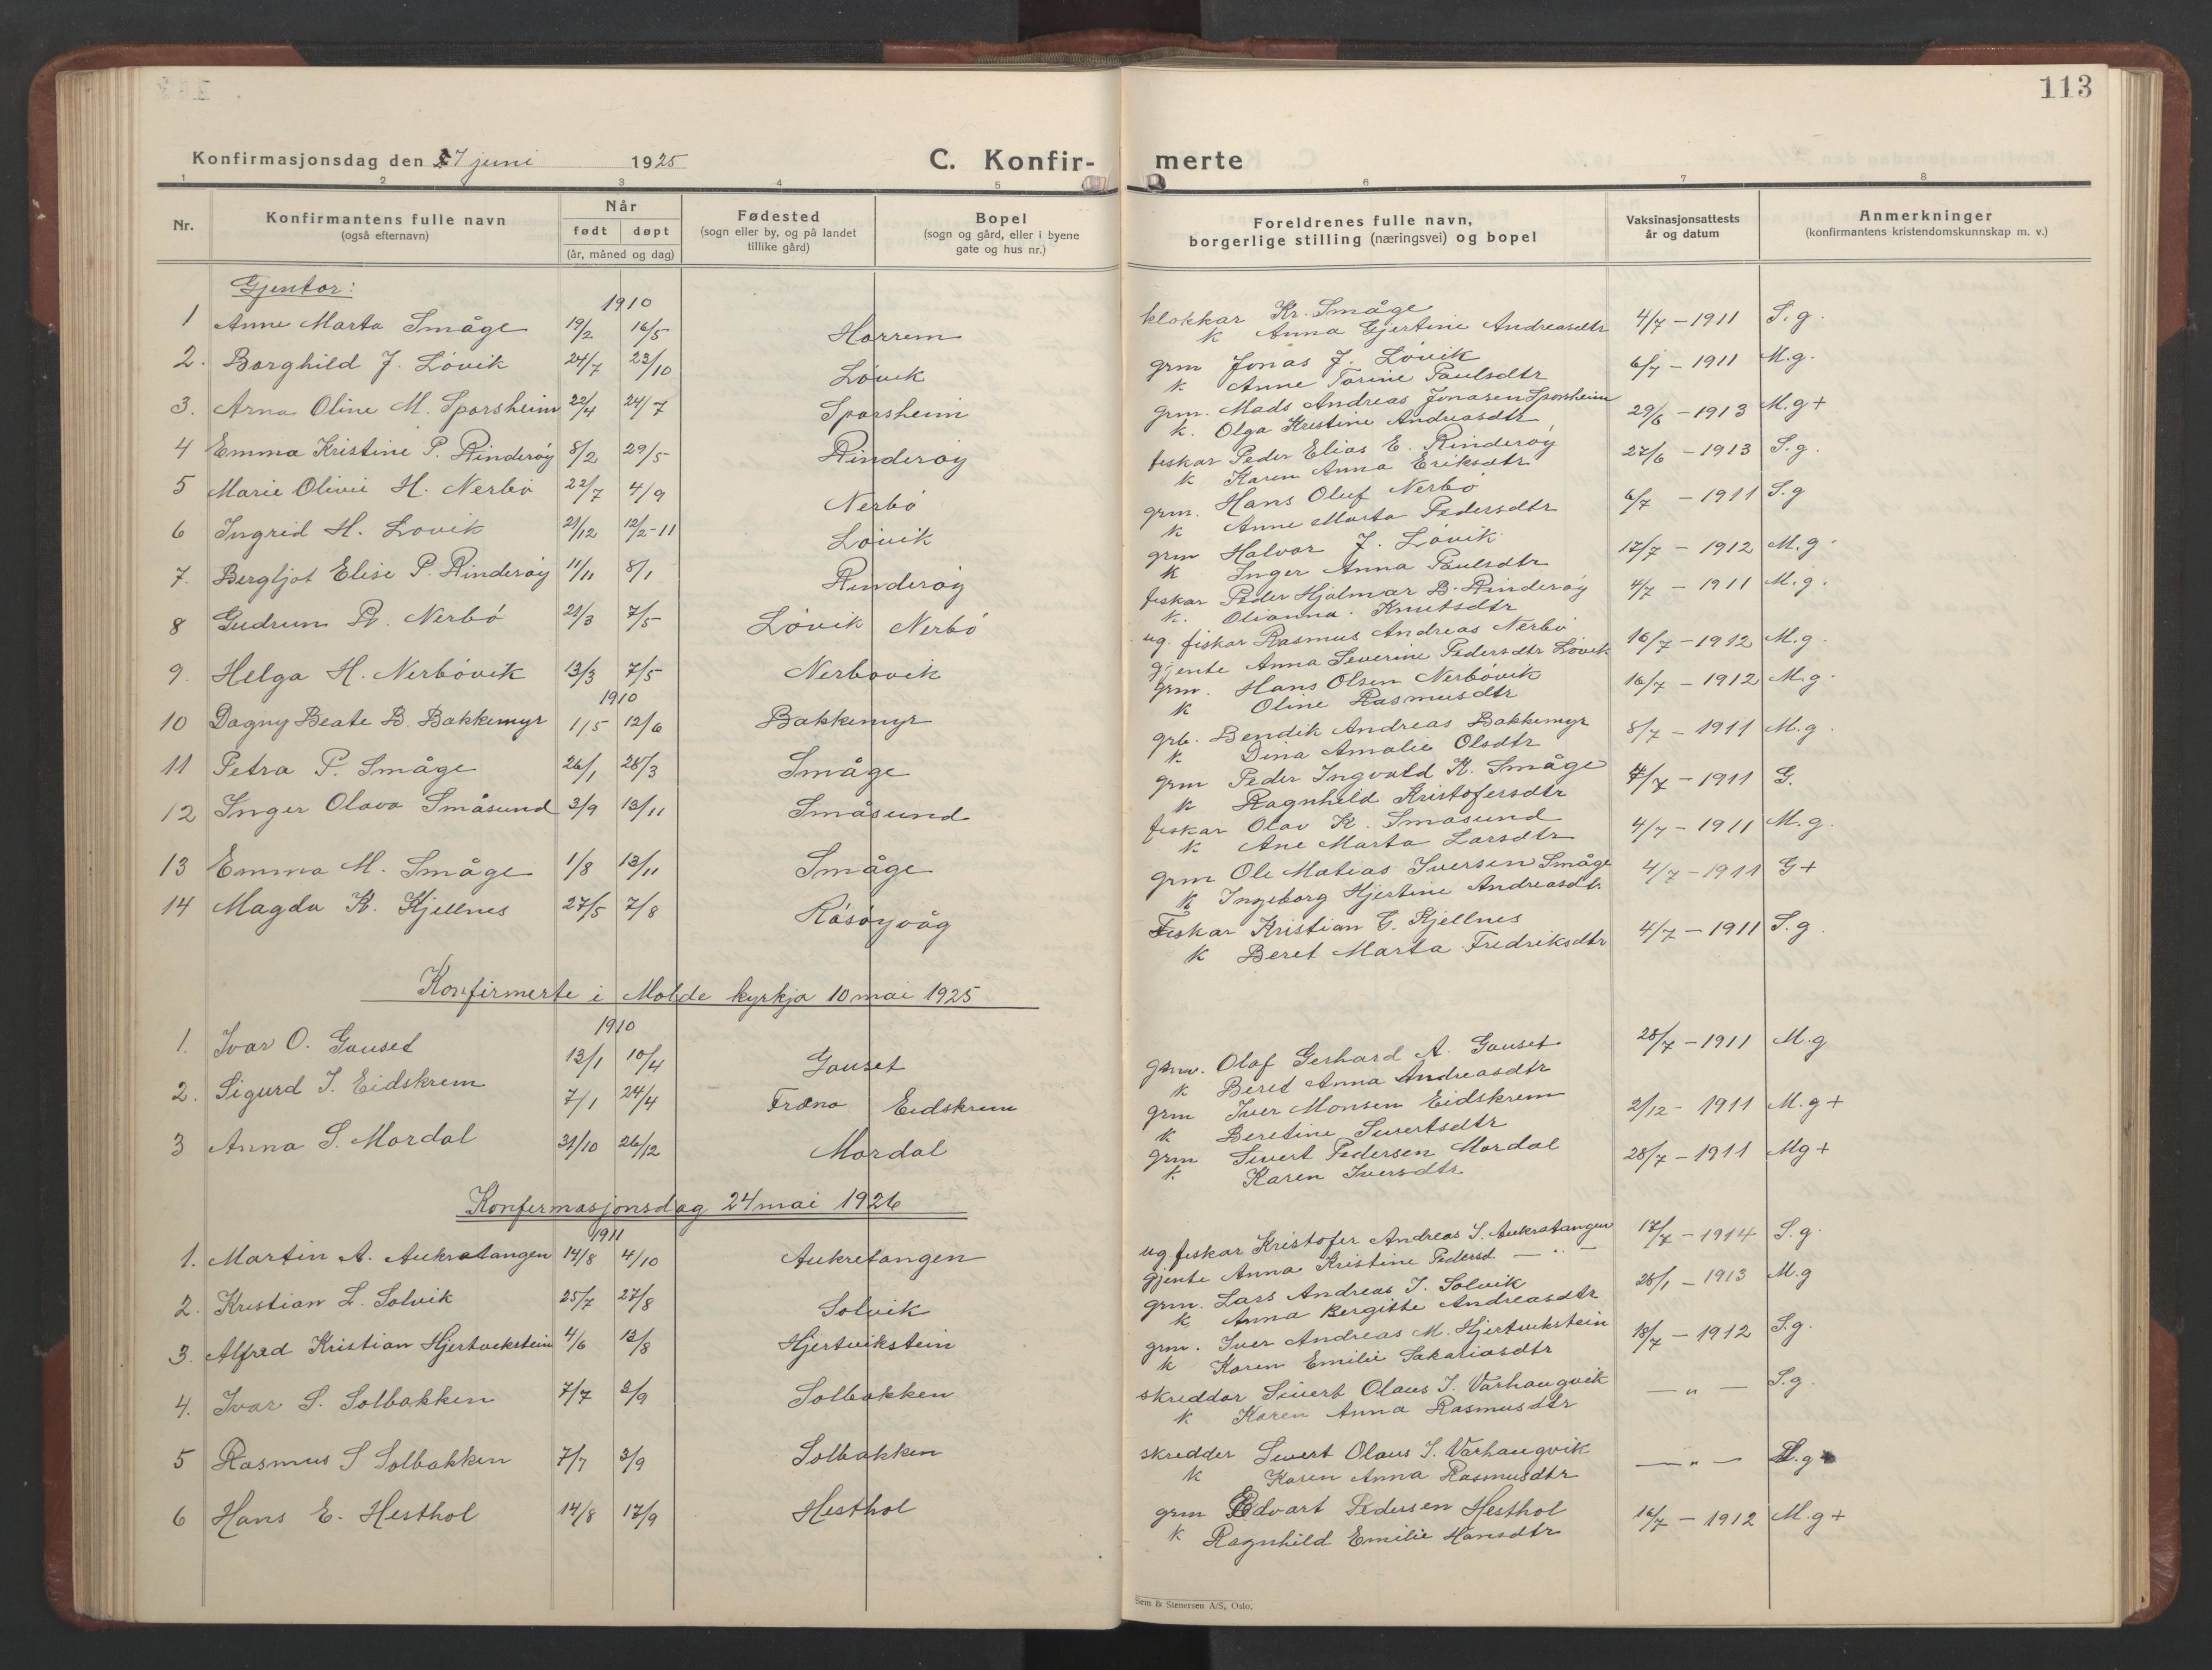 113
Konfirmasjonsdag den 7 juni 1925 C. Konfir- merte
1 2 3 4 5 6 7 8
Nr. Konfirmantens fulle navn (også efternavn) Når født døpt (år, måned og dag) Fødested (sogn eller by, og på landet tillike gård) Bopel (sogn og gård, eller i byene gate og hus nr.) Foreldrenes fulle navn, borgerlige stilling (næringsvei) og bopel Vaksinasjonsattests år og datum Anmerkninger (konfirmantens kristendomskunnskap m. v.)
Gjentor:
1910
1 Anne Marta Småge 19/2 16/5 Horrem klokkar Kr. Småge 4/7 - 1911 S.g.
k Anna Gjertine Andreasdtr
2. Borghild J. Lövik 24/7 23/10 Lövik grm Jonas J. Lövik 6/7 - 1911 M.g.
k Anne Torine Paulsdtr
3. Arna Oline M. Sporsheim 22/4 24/7 Sporsheim grm. Mads Andreas Jonasen Sporsheim 29/6 - 1913 M.g +
k. Olga Kristine Andreasdtr
4 Emma Kristine P. Rinderöy 8/2 29/5 Rinderöy fiskar Peder Elias E. Rinderöy 27/6 - 1913 S.g.
k Karen Anna Eriksdtr
5 Marie Olivie H. Nerbö 22/7 4/9 Nerbö grm. Hans Oluf Nerbö 6/7 - 1911 S.g
k Anne Marta Pedersdtr
6 Ingrid H. Lövik 21/12 12/2-11 Lövik grm Halvor J. Lövik 17/7 - 1912 M.g.
k Inger Anna Paulsdtr
7. Bergljot Elise P. Rinderöy 11/11 8/1 Rinderöy fiskar Peder Hjalmar B. Rinderöy 4/7 - 1911 M.g.
k. Olianna Knutsdtr
8 Gudrun R. Nerbö 21/3 7/5 Lövik Nerbö ug. fiskar Rasmus Andreas Nerbö 16/7 - 1912 M.g.
gjente Anna Severine Pedersdtr Lövik
9. Helga H. Nerbövik 13/3 7/5 Nerbövik grm. Hans Olsen Nerbövik 16/7 - 1912 M.g.
k Oline Rasmusdtr
1910
10 Dagny Beate B. Bakkemyr 1/5 12/6 Bakkemyr grb. Bendik Andreas Bakkemyr 8/7 - 1911 M.g.
k. Dina Amalie Olsdtr
11 Petra P. Småge 26/1 28/3 Småge grm Peder Ingvald K. Småge 7/7 - 1911 G.
k Ragnhild Kristofersdtr
12 Inger Olava Småsund 3/9 13/11 Småsund fiskar Olav K. Småsund 4/7 - 1911 M.g.
k Ane Marta Larsdtr
13 Emma M. Småge 1/8 13/11 Småge grm Ole Matias Iversen Småge 4/7 - 1911 G+
k Ingeborg Hjertine Andreasdtr.
14 Magda K. Kjellnes 27/5 7/8 Råsöyvåg Fiskar Kristian G. Kjellnes 4/7 - 1911 S.g.
k Beret Marta Fredriksdtr
Konfirmerte i Molde kyrkja 10 mai 1925
1910
1. Ivar O. Gauset 13/1 10/4 Gauset grm. Olaf Gerhard A. Gauset 28/7 - 1911 M.g
k Beret Anna Andreasdtr
2. Sigurd I. Eidskrem 7/1 24/4 Fræna Eidskrem grm Iver Monsen Eidskrem 2/12 - 1911 M.g +
k Beretine Sivertsdtr
3 Anna S. Mordal 31/10 26/12 Mordal grm Sivert Pedersen Mordal 28/7 - 1911 Mg +
k. Karen Iversdtr
Konfermasjonsdag 24 mai 1926
1911
1. Martin A. Aukratangen 14/8 4/10 Aukretangen ug fiskar Kristofer Andreas S. Aukratangen 17/7 - 1914 S.g.
gjente Anna Kristine Pedersd. — " —
2. Kristian L. Solvik 25/7 27/8 Solvik grm. Lars Andreas I. Solvik 28/1 - 1913 M.g
k Anna Bergitte Andreasdtr
3. Alfred Kristian Hjertvikstein 4/6 13/8 Hjertvikstein grm. Iver Andreas M. Hjertvikstein 18/7 - 1912 S.g.
k Karen Emilie Sakariasdtr
4. Ivar S. Solbakken 7/7 3/9 Solbakken skreddar Sivert Olaus I. Varhaugvik — " — S.g.
k Karen Anna Rasmusdtr
5 Rasmus S Solbakken 7/7 3/9 Solbakken skredder Sivert Olaus I. Varhaugvik — " — .g
k Karen Anna Rasmusdtr
6 Hans E. Hesthol 14/8 17/9 Hesthol grm Edvart Pedersen Hesthol 16/7 - 1912 M.g +
k Ragnhild Emilie Hansdtr
Sem & Stenersen A/S, Oslo.